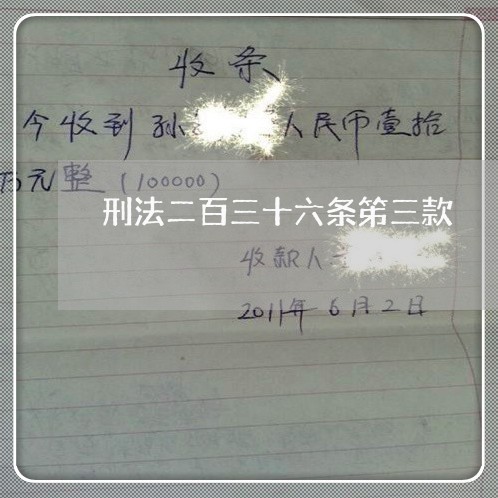 收条
今收到孙 人民币壹拾
万元整（100000）
刑法二百三十六条第三款
收款人
2011年6月2日